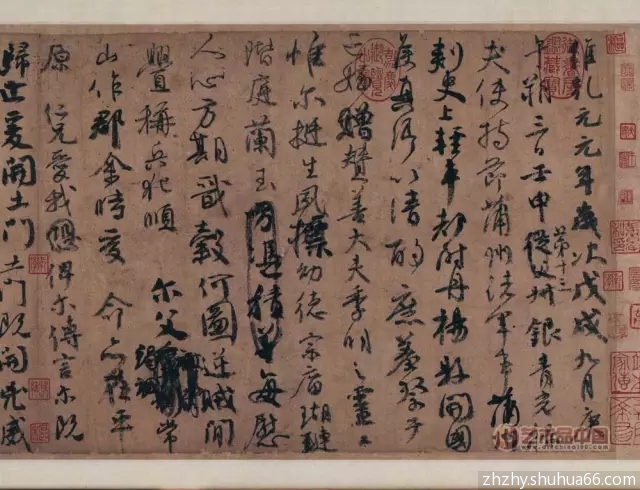 維乾元元年歲次戊戌九月庚
午朔三日壬申第十三從父銀青光祿
夫使持節蒲州諸軍事蒲州
刺史上輕車都尉丹楊縣開國
侯真卿以清酌庶羞祭于
亡姪贈贊善大夫季明之靈
惟爾挺生夙標幼德宗廟瑚璉
階庭蘭玉方憑積善每慰
人心方期戩穀何圖逆賊閒
釁稱兵犯順爾父常
山作郡余時受命亦在平
原仁兄愛我俾爾傳言爾既
歸止爰開土門土門既開凶威
艺术品中国
zhzhyshuhua66.com